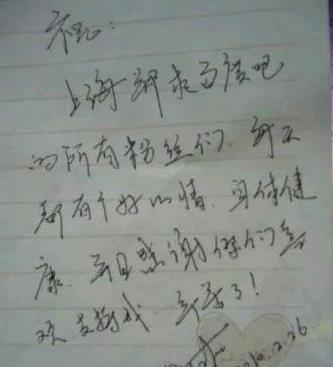 祝：
上海郑求百度吧
的所有粉丝们.每天
都有个好心情.身体健
康.并且感谢你们喜
欢.支持我.辛苦了！
2010.2.26